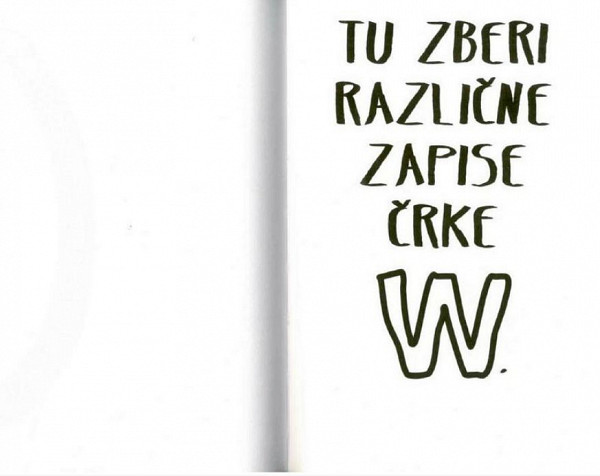 TU ZBERI
RAZLIČNE
ZAPISE
ČRKE
W.